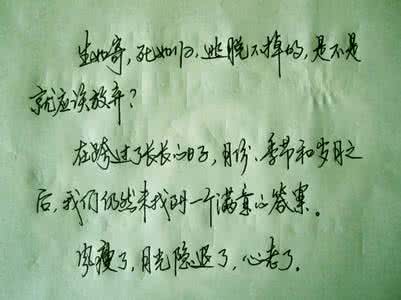 生如寄,死如归,逃脱不掉的,是不是
就应该放弃?
在跨过了长长的日子,月份,季节和岁月之
后,我们仍然未找到一个满意的答案。
瘦了,月光隐退了,心老了。